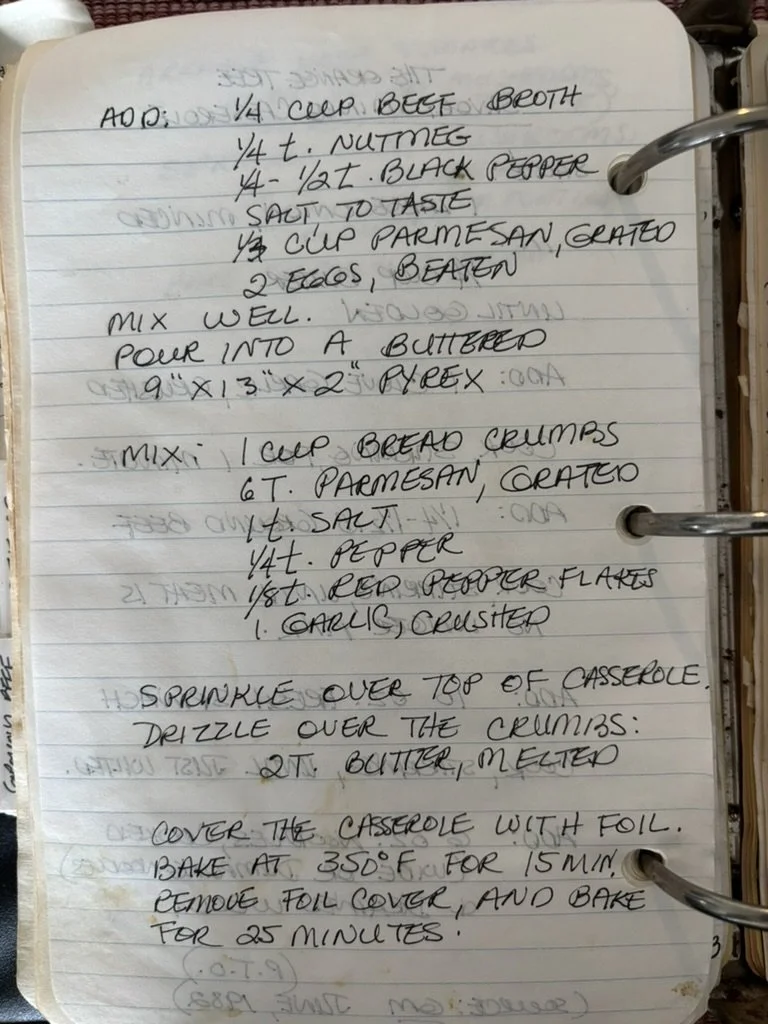 ADD: 1/4 CUP BEEF BROTH
1/4 t. NUTMEG
1/4 - 1/2 t. BLACK PEPPER
SALT, TO TASTE
1/3 CUP PARMESAN, GRATED
2 EGGS, BEATEN
MIX WELL.
POUR INTO A BUTTERED
9" X 13" X 2" PYREX
MIX: 1 CUP BREAD CRUMBS
6 T. PARMESAN, GRATED
1 t SALT
1/4 t. PEPPER
1/8 t. RED PEPPER FLAKES
1. GARLIC, CRUSHED
SPRINKLE OVER TOP OF CASSEROLE.
DRIZZLE OVER THE CRUMBS:
2 T. BUTTER, MELTED
COVER THE CASSEROLE WITH FOIL.
BAKE AT 350°F FOR 15 MIN.
REMOVE FOIL COVER, AND BAKE
FOR 25 MINUTES.